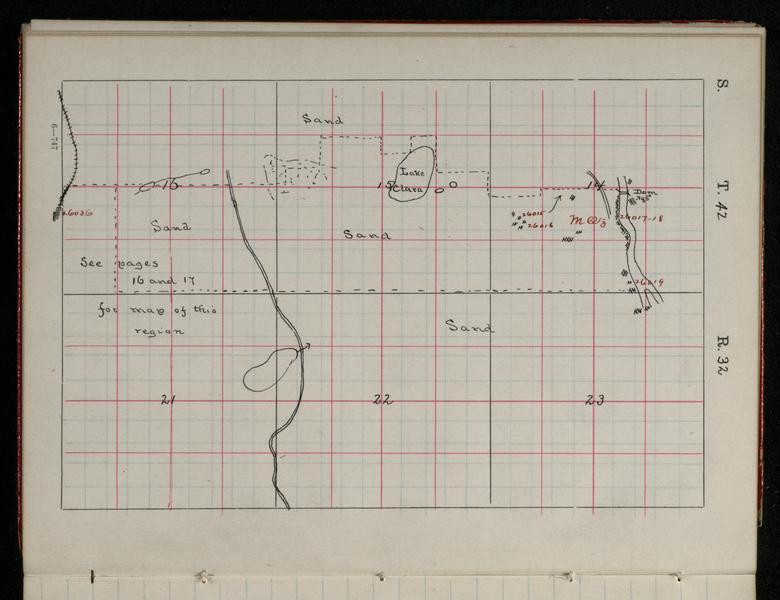 S.
T. 42
R. 32
6—747
Sand
16
15
Lake
Clara
14
Dam
26036
26015
26016
26017-18
26019
Sand
Sand
See pages
16 and 17
for map of this
region
Sand
21
22
23